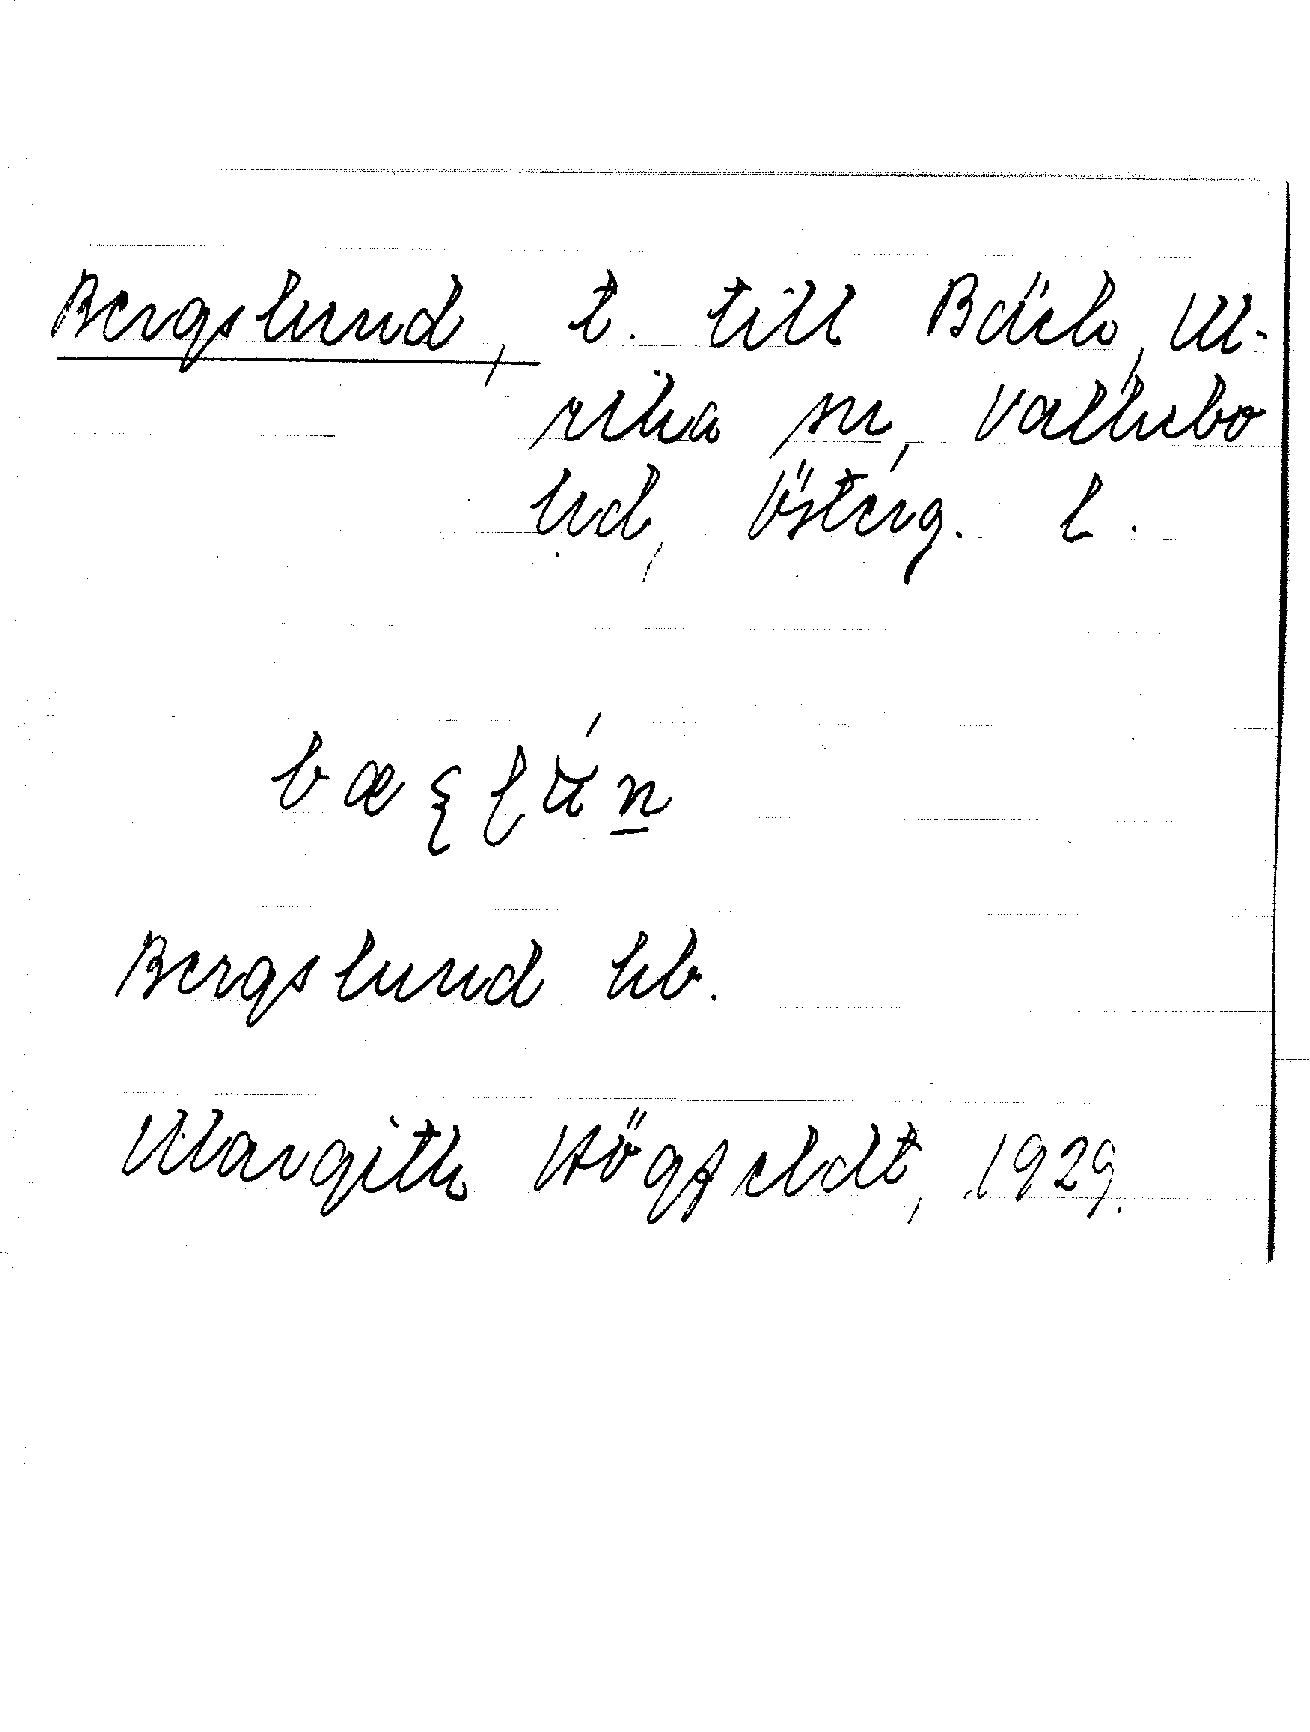 Bergslund, t. till Bäck, Ul-
rika sn, Valkebo
hd, Österg. l.
Bergslund hb.
Margith Högfeldt, 1929.